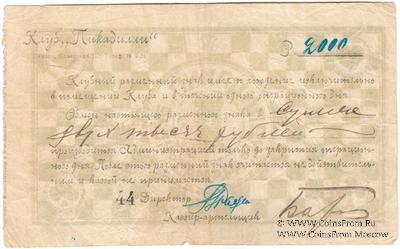 Клуб „Пикадилли"
Р 2000
Клубный разменный знак имеет хождение исключительно
в помещении Клуба и в течении одного операционного дня.
Обмен настоящего разменного знака в сумме
двух тысяч рублей
производится Администрацией только до закрытия операцион-
ного дня. После этого разменный знак считается не действитель-
ным и кассой не принимается.
44 Директор
Кассир-артельщик
© www.CoinsFrom.Ru
© www.CoinsFrom.Moscow